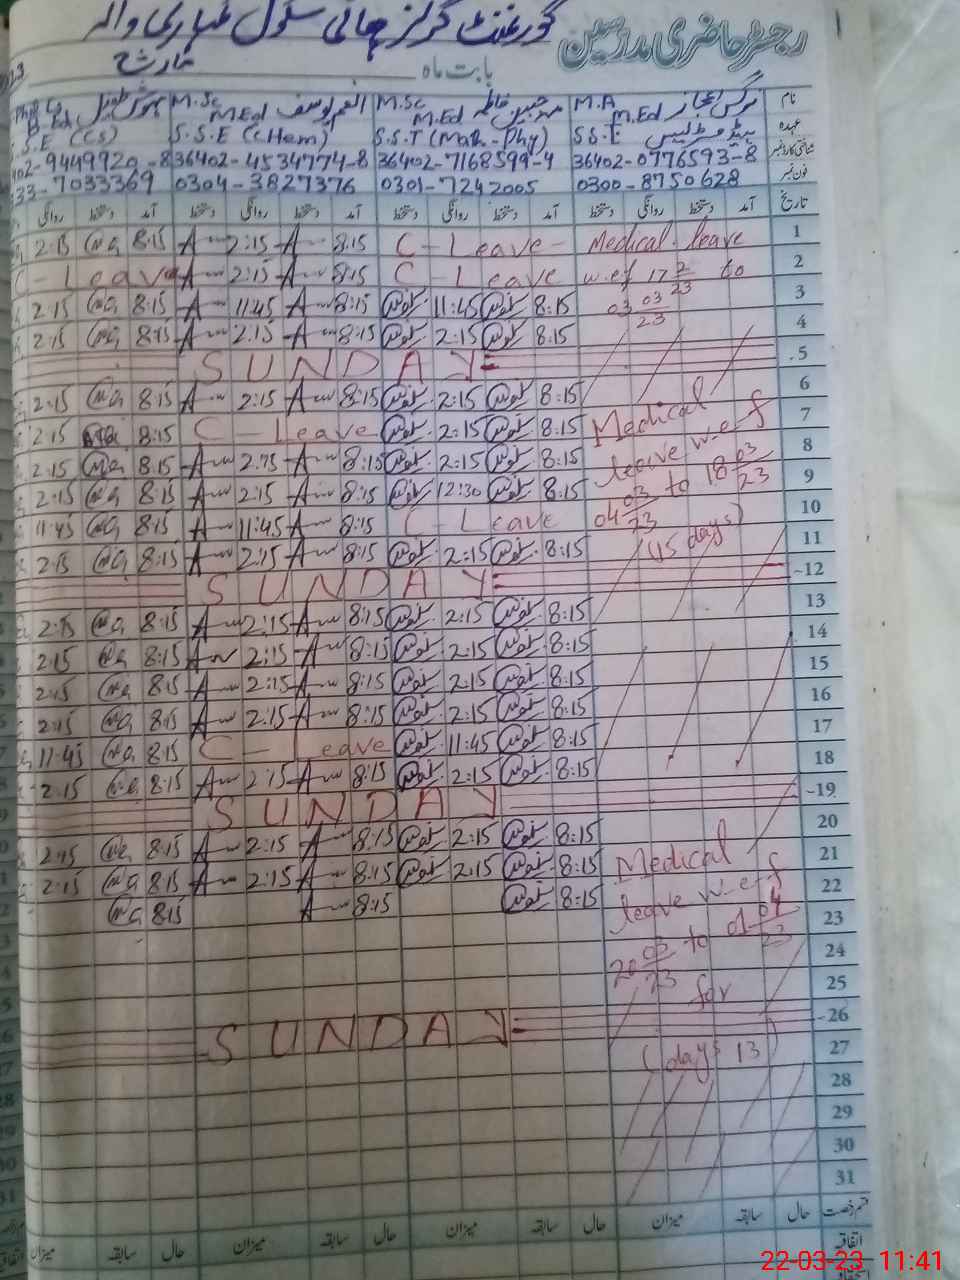 رجسٹر حاضری مدرسین گورنمنٹ گرلز ہائی سکول
بابت ماہ مارچ
نام
M.A M.Ed نرگس اعجاز
M.Sc M.Ed
M.Sc M.Ed انعم یوسف
عہدہ
S.S.E ہیڈ مسٹریس
S.S.T (Math-Phy)
S.S.E (Chem)
S.E (CS)
شناختی کارڈ نمبر
36402-0776593-8
36402-7168599-4
36402-4534774-8
فون نمبر
0300-8750628
0301-7242005
0304-3827376
33-7033369
تاریخ آمد دستخط روانگی دستخط آمد دستخط روانگی دستخط آمد دستخط روانگی دستخط آمد دستخط روانگی
1 Medical leave C-Leave 8:15 2:15 8:15 2:15
2 w.e.f 17 2/23 to C-Leave 8:15 2:15 C-Leave
3 03 03/23 8:15 11:45 8:15 11:45 8:15 2:15
4 8:15 2:15 8:15 2:15 8:15 2:15
5 SUNDAY
6 8:15 2:15 8:15 2:15 8:15 2:15
7 Medical 8:15 2:15 C-Leave 8:15 2:15
8 leave w.e.f 8:15 2:15 8:15 2:15 8:15 2:15
9 04 03/23 to 18 03/23 8:15 12:30 8:15 2:15 8:15 2:15
10 C-Leave 8:15 11:45 8:15 11:45
11 (15 days) 8:15 2:15 8:15 2:15 8:15 2:15
12 SUNDAY
13 8:15 2:15 8:15 2:15 8:15 2:15
14 8:15 2:15 8:15 2:15 8:15 2:15
15 8:15 2:15 8:15 2:15 8:15 2:15
16 8:15 2:15 8:15 2:15 8:15 2:15
17 8:15 11:45 C-Leave 8:15 11:45
18 8:15 2:15 8:15 2:15 8:15 2:15
19 SUNDAY
20 8:15 2:15 8:15 2:15 8:15 2:15
21 Medical 8:15 2:15 8:15 2:15 8:15 2:15
22 leave w.e.f 8:15 8:15 8:15
23 20 03/23 to 01 04/23
24
25 for
26 SUNDAY
27 (days 13)
28
29
30
31
قسم رخصت حال سابقہ میزان حال سابقہ میزان حال سابقہ میزان حال سابقہ میزان
اتفاقیہ
22-03-23 11:41